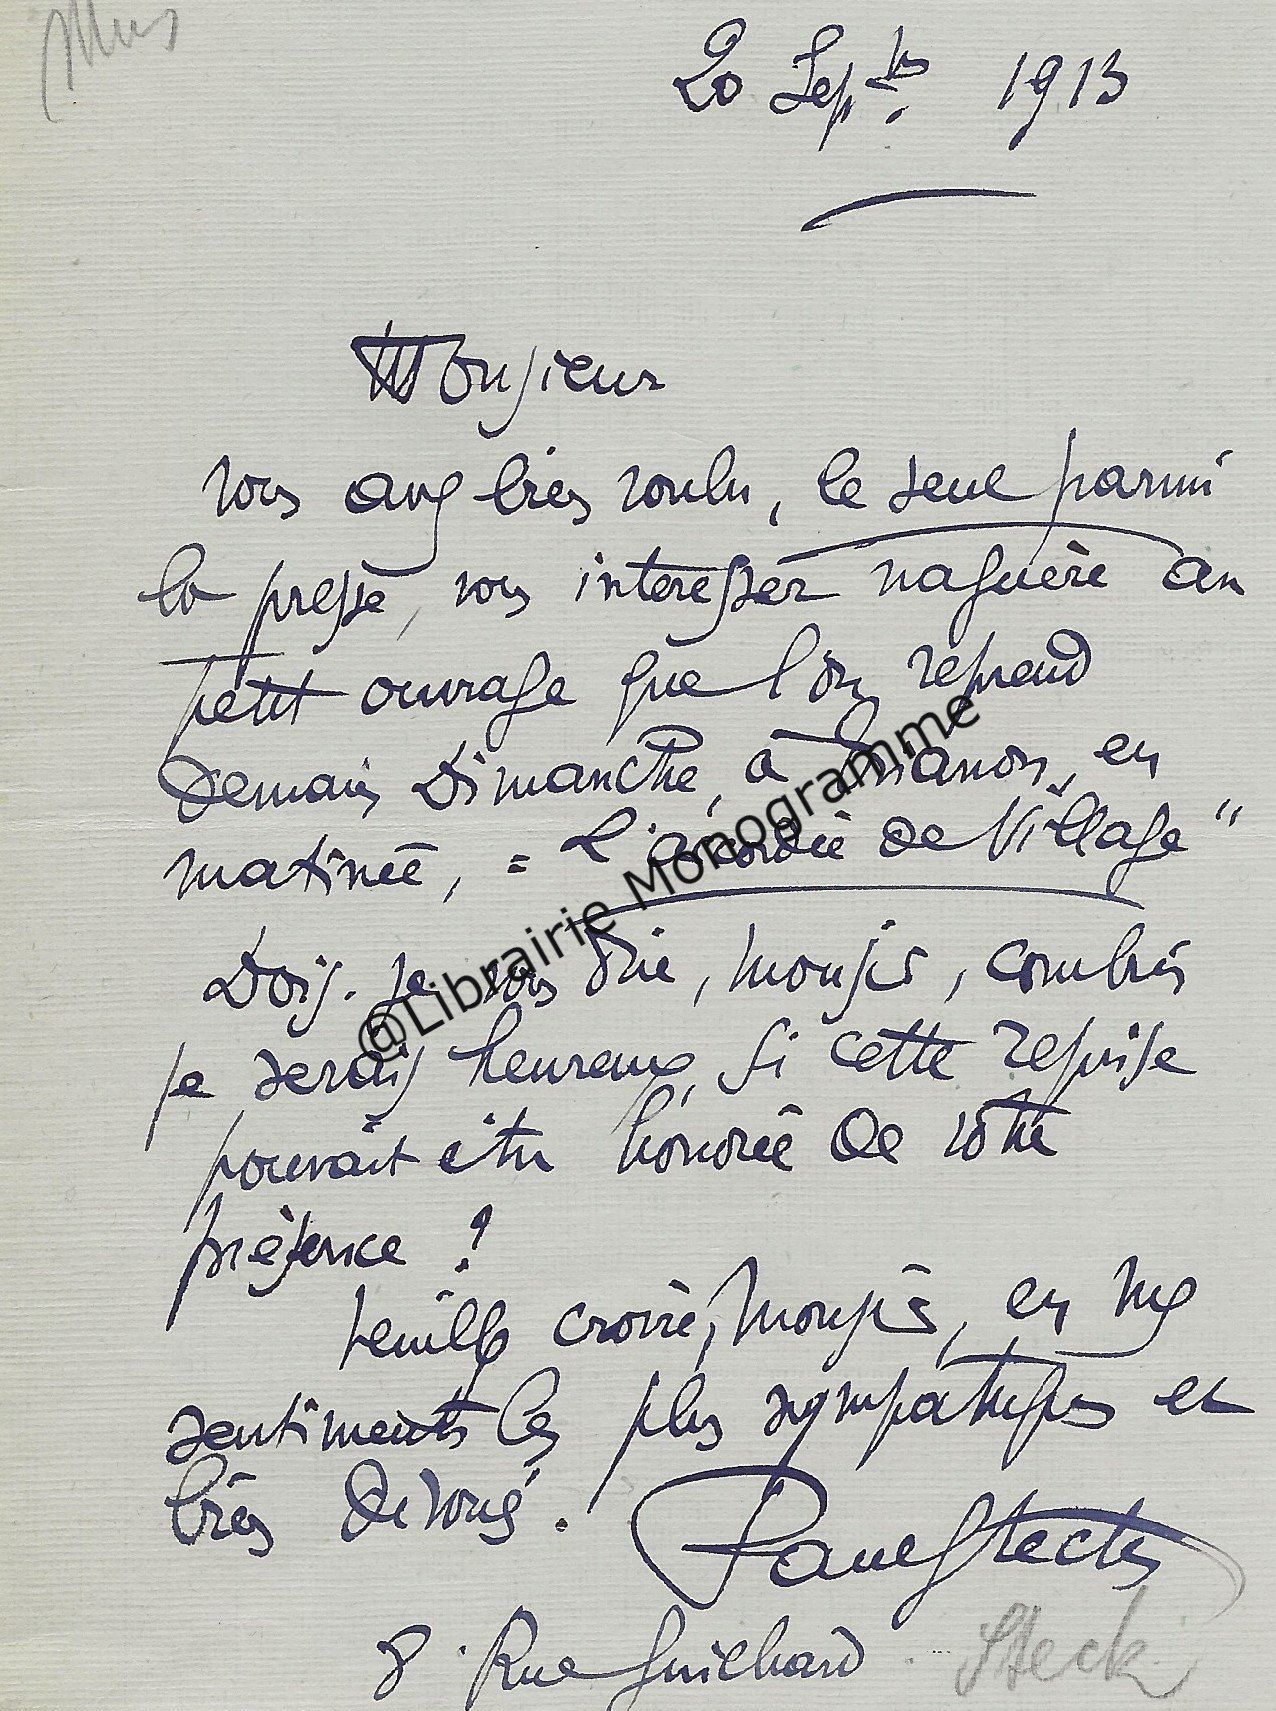 Mus
20 Septbre 1913
Monsieur
vous avez bien voulu, le seul parmi
la presse, vous interesser naguère au
petit ouvrage que l'on reprend
demain Dimanche, à Trianon, en
matinée, = L'accordée de Village"
Dois-je vous dire, monsieur, combien
je serais heureux, si cette reprise
pouvait être honorée de votre
présence ?
Veuillez croire, Monsieur, en mes
sentiments les plus sympathiques et
bien dévoués.
Paul Steck
8. Rue Guichard
Steck
@Librairie Monogramme